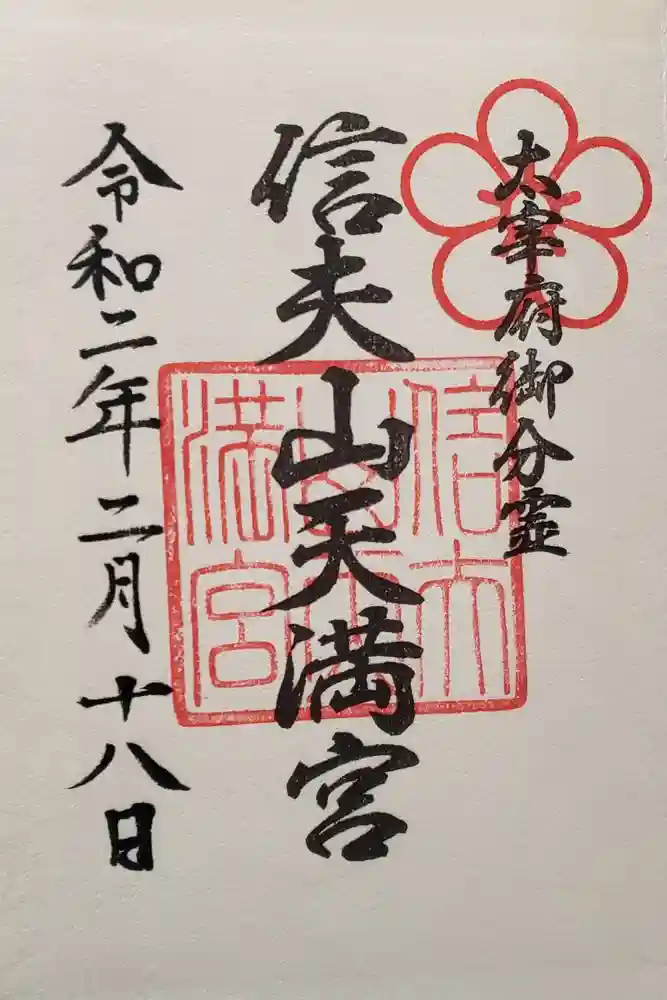 太宰府御分霊
信夫山天満宮
令和二年二月十八日
信夫
山天
満宮